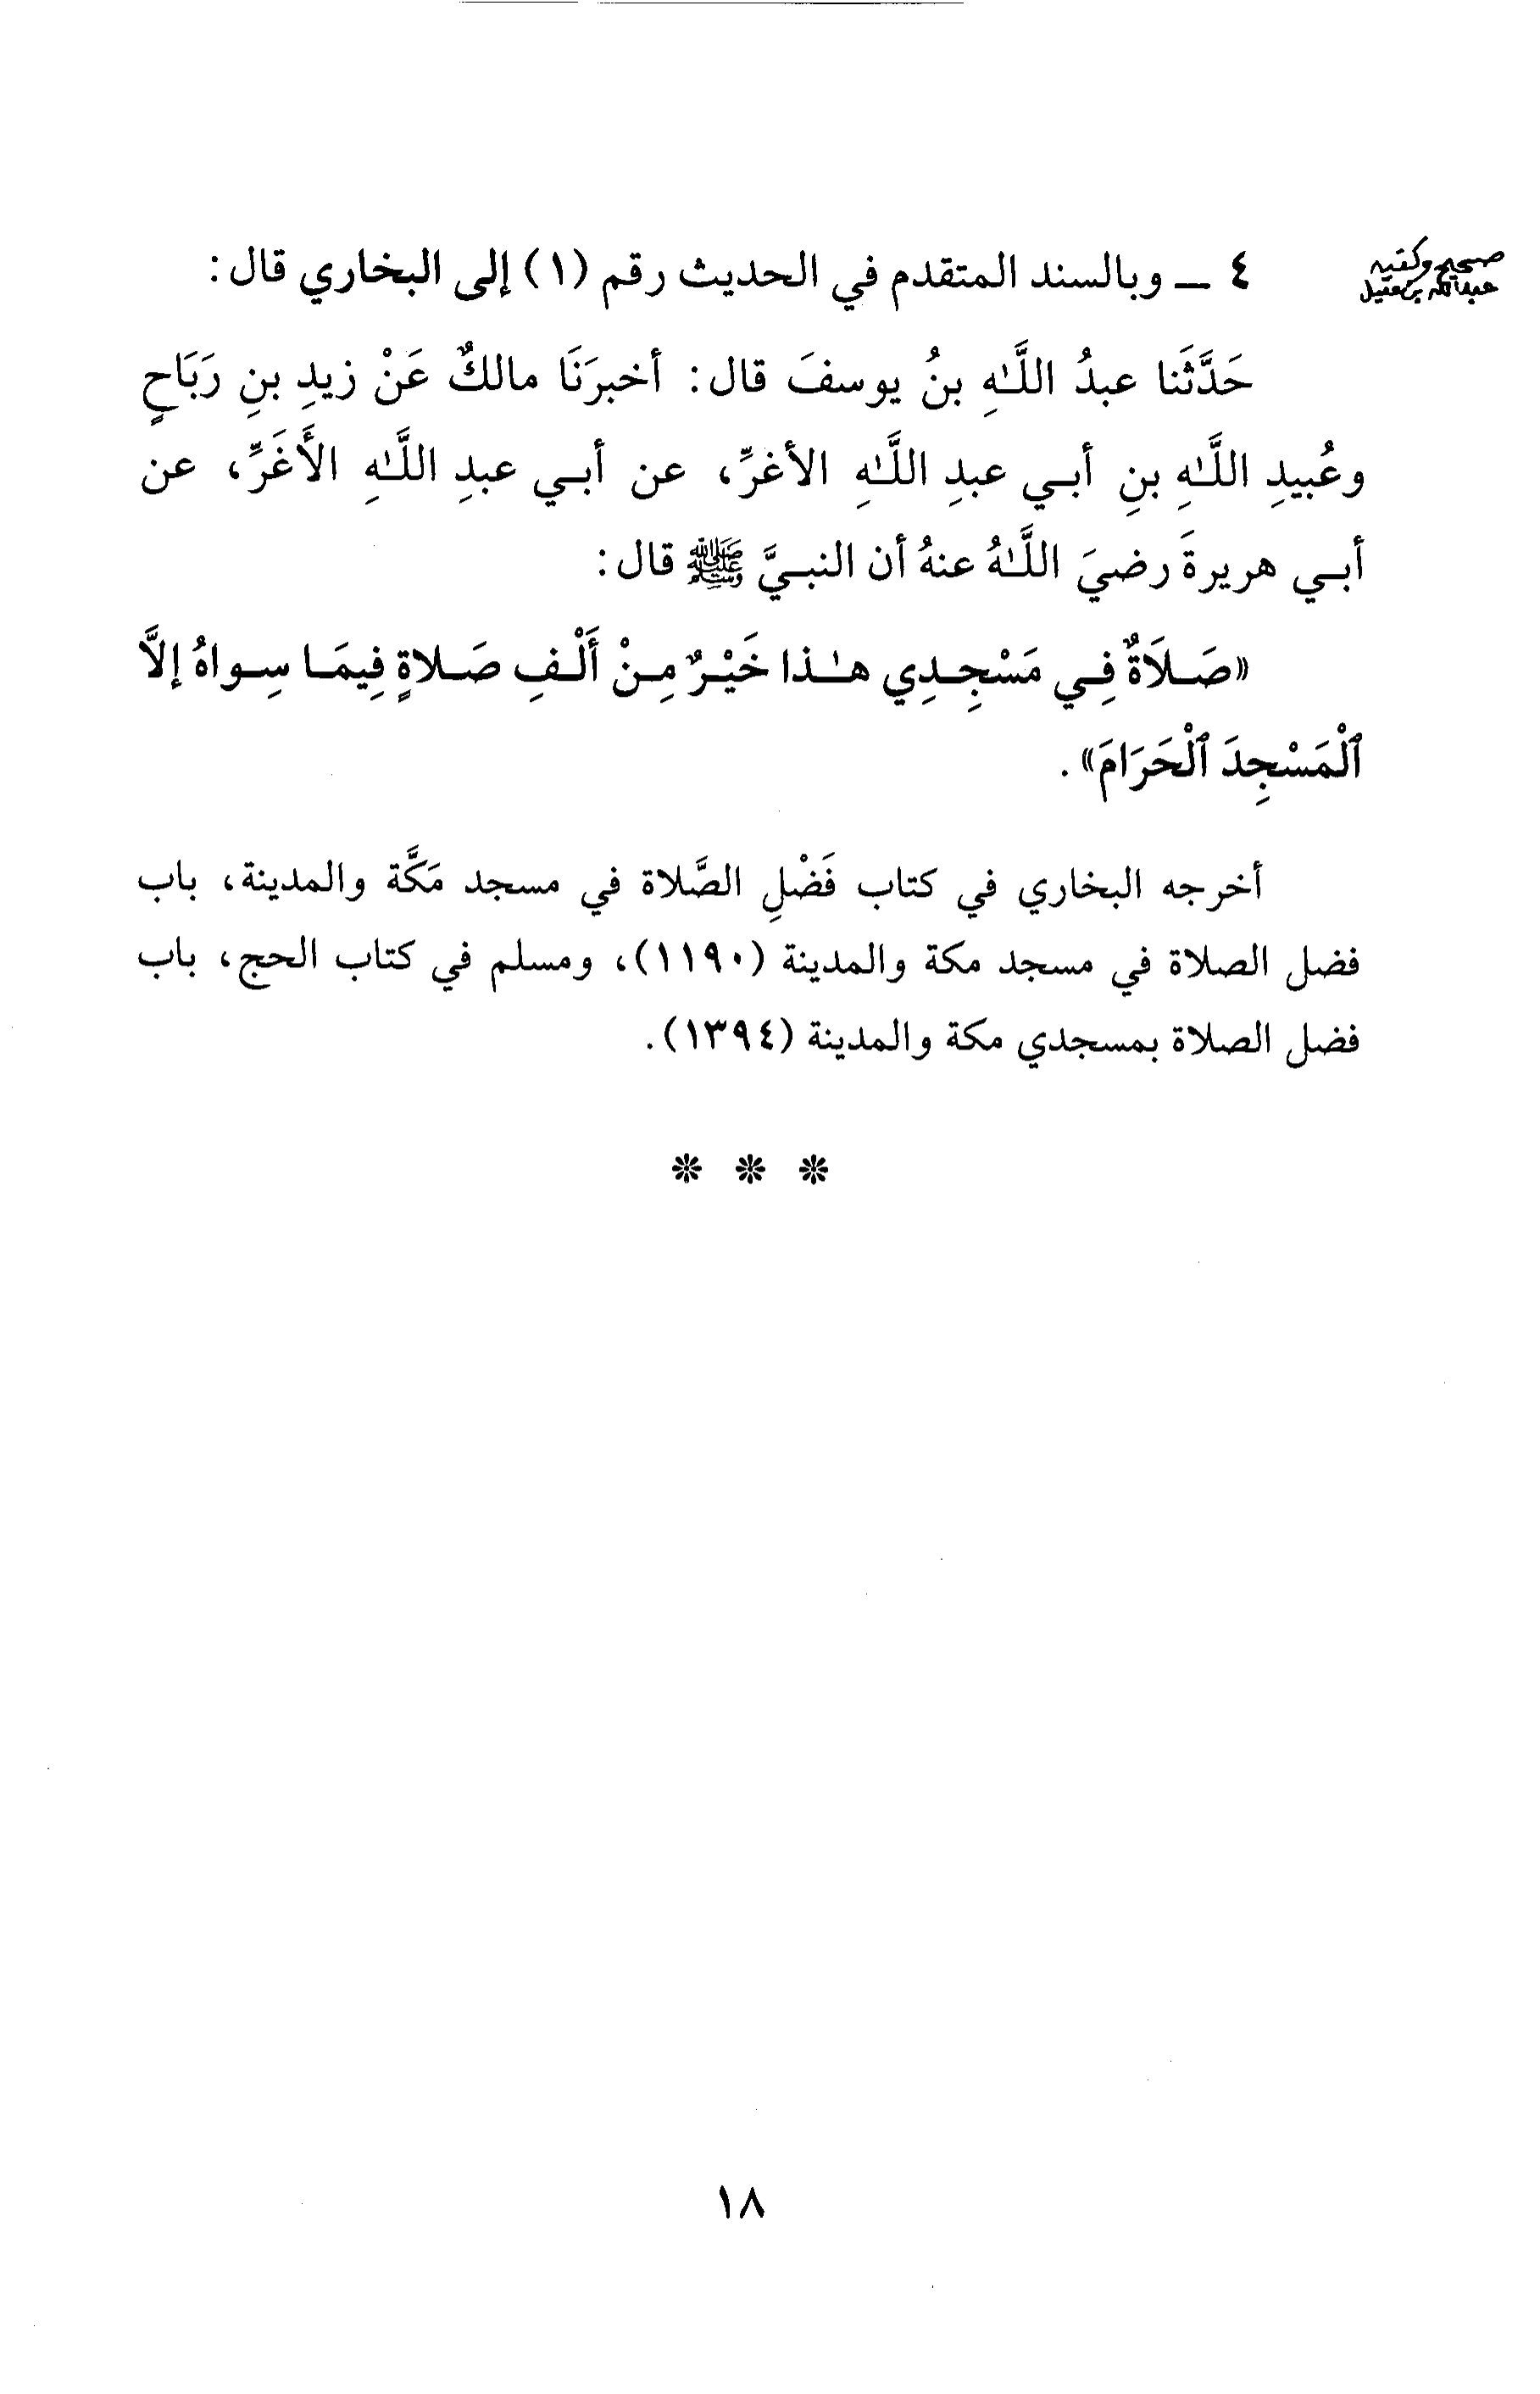 صحيح وكتبه
عبدالله بن عقيل
٤ ـ وبالسند المتقدم في الحديث رقم (١) إلى البخاري قال:
حَدَّثَنا عبدُ اللَّـٰهِ بنُ يوسفَ قال: أخبرَنَا مالكٌ عَنْ زيدِ بنِ رَبَاحٍ
وعُبيدِ اللَّـٰهِ بنِ أبـي عبدِ اللَّـٰهِ الأغرِّ، عن أبـي عبدِ اللَّـٰهِ الأَغَرِّ، عن
أبـي هريرةَ رضيَ اللَّـٰهُ عنهُ أن النبـيَّ ﷺ قال:
«صَـلَاةٌ فِـي مَسْجِـدِي هـٰـذا خَيْـرٌ مِـنْ أَلْـفِ صَـلاةٍ فِيمَـا سِـواهُ إلاَّ
ٱلْمَسْجِدَ ٱلْحَرَامَ».
أخرجه البخاري في كتاب فَضْلِ الصَّلاة في مسجد مَكَّة والمدينة، باب
فضل الصلاة في مسجد مكة والمدينة (١١٩٠)، ومسلم في كتاب الحج، باب
فضل الصلاة بمسجدي مكة والمدينة (١٣٩٤).
* * *
١٨